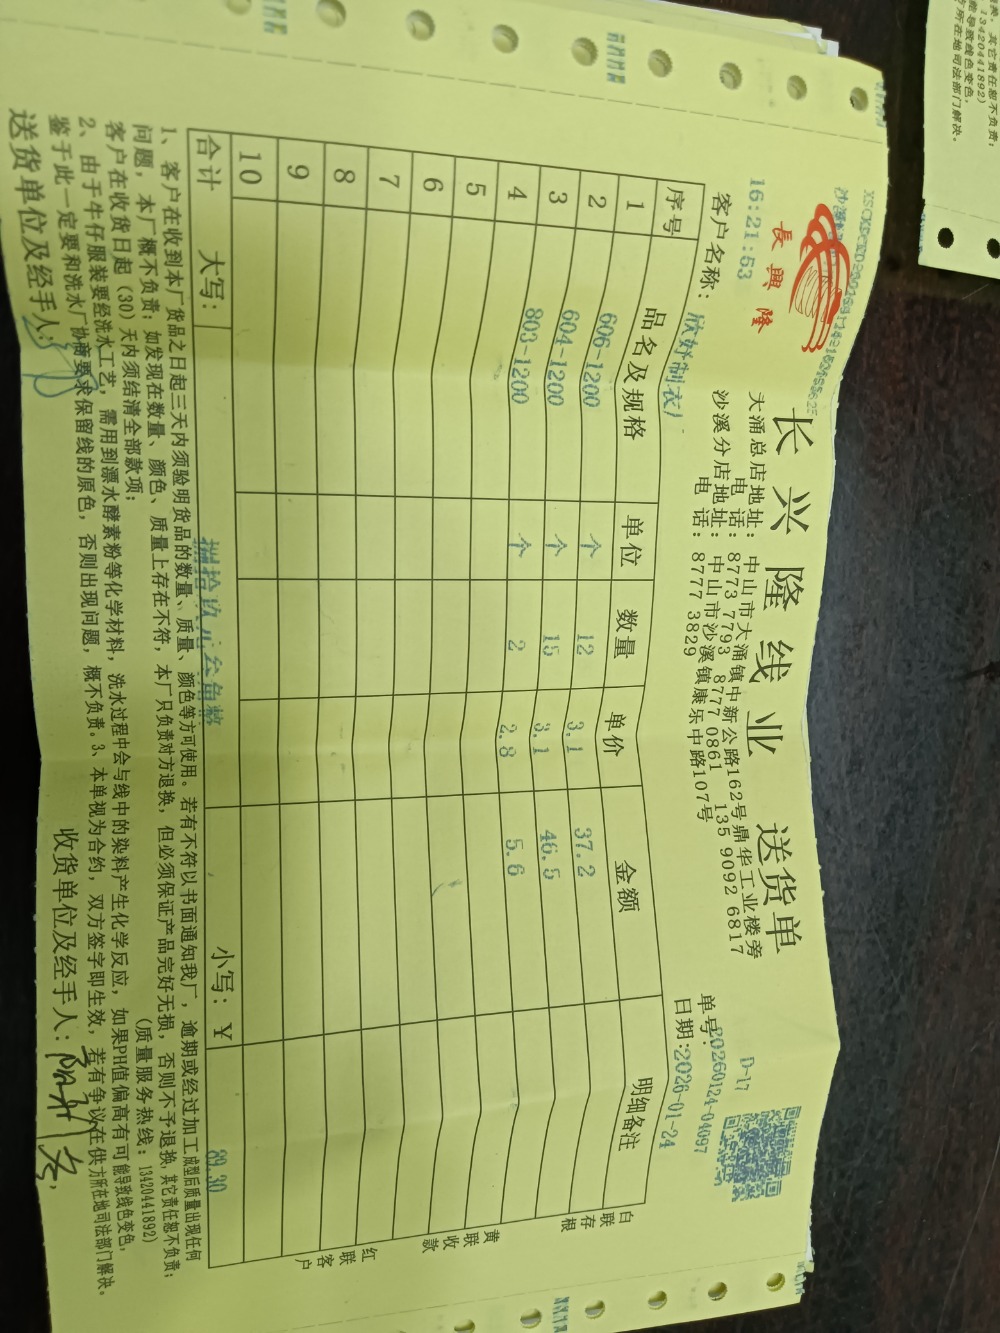 長興隆
16:21:53
长兴隆线业 送货单
大涌总店地址：中山市大涌镇中新公路162号鼎华工业楼旁
电 话：8773 7793 8777 0861 135 9092 6817
沙溪分店地址：中山市沙溪镇康乐中路107号
电 话：8777 3829
D-17
单号：20260124-04097
客户名称：欣妤制衣厂
日期：2026-01-24
序号 品名及规格 单位 数量 单价 金额 明细备注
1 606-1200 个 12 3.1 37.2
2 604-1200 个 15 3.1 46.5
3 803-1200 个 2 2.8 5.6
4
5
6
7
8
9
10
合计 大写：捌拾玖元叁角整 小写：￥ 89.30
白联存根
黄联收款
红联客户
1、客户在收到本厂货品之日起三天内须验明货品的数量、质量、颜色等方可使用。若有不符以书面通知我厂，逾期或经过加工成型后质量出现任何
问题，本厂概不负责；如发现在数量、颜色、质量上存在不符，本厂只负责对方退换，但必须保证产品完好无损，否则不予退换，其它责任恕不负责；
客户在收货日起（30）天内须结清全部款项； （质量服务热线：13420441892）
2、由于牛仔服装要经洗水工艺，需用到漂水酵素粉等化学材料，洗水过程中会与线中的染料产生化学反应，如果PH值偏高有可能导致线色变色，
鉴于此一定要和洗水厂协商要求保留线的原色，否则出现问题，概不负责。3、本单视为合约，双方签字即生效，若有争议在供方所在地司法部门解决。
送货单位及经手人： 收货单位及经手人：
其它责任恕不负责；
13420441892)
能导致线色变色，
方所在地司法部门解决。